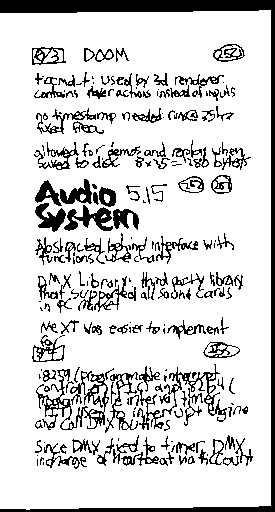 9/3 DOOM 250
ticcmd_t: used by 3d renderer
contains player actions instead of inputs
no timestamp needed: runs @ 35hz
fixed freq
allowed for demos and replays when
saved to disk 8x35 = 280 bytes/s
Audio 5.15 252
System
Abstracted behind interface with
functions (see chart)
DMX Library: third party library
that supported all sound cards
in PC market
NeXT was easier to implement
for
255
i8259 (programmable interrupt
controller) (PIC) and 8254 (
programmable interval timer
PIT) used to interrupt engine
and call DMX routines
Since DMX tied to timer, DMX
in charge of heartbeat via ticcount